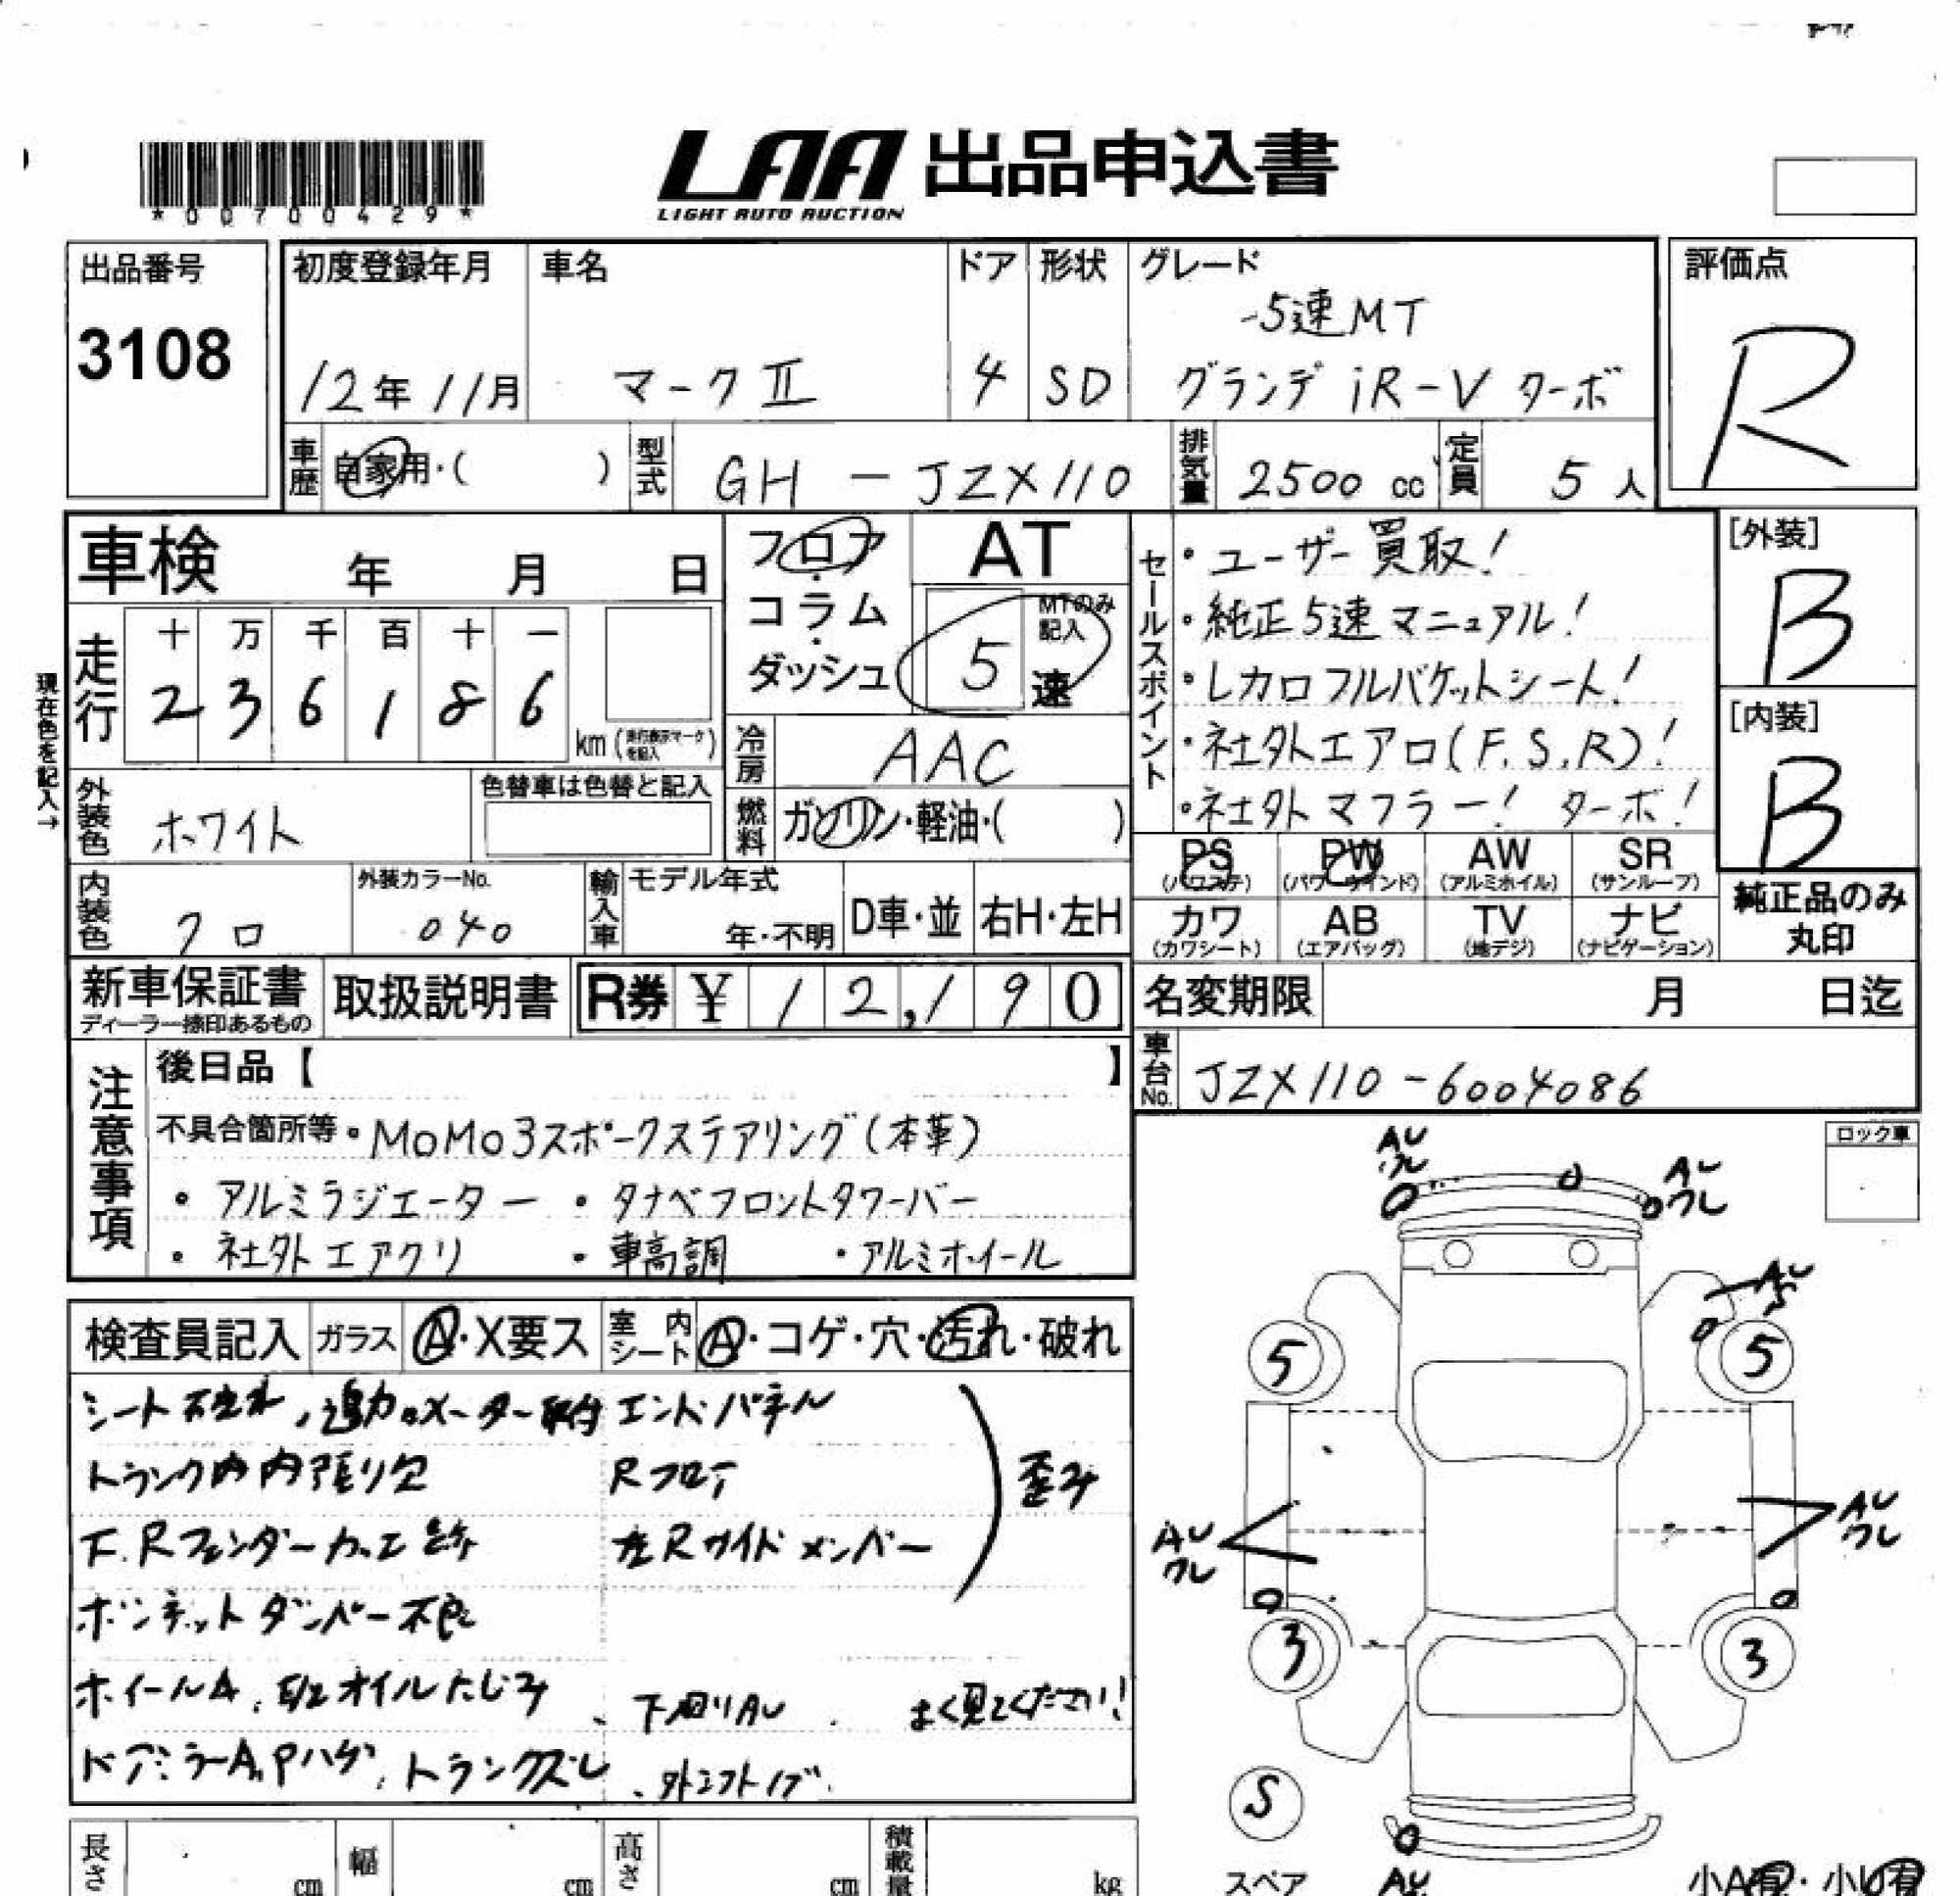 *00700429*
LAA 出品申込書
LIGHT AUTO AUCTION
出品番号
3108
初度登録年月
12年11月
車名
マークⅡ
ドア
4
形状
SD
グレード
-5速MT
グランデ iR-V ターボ
評価点
R
車歴 自家用・( )
型式 GH-JZX110
排気量 2500 cc
定員 5人
車検 年 月 日
フロア・コラム・ダッシュ
AT
MTのみ記入
5速
セールスポイント
・ユーザー買取!
・純正5速マニュアル!
・レカロフルバケットシート!
・社外エアロ(F.S.R)!
・社外マフラー! ターボ!
[外装]
B
[内装]
B
現在色を記入→
走行
十 万 千 百 十 一
2 3 6 1 8 6
km(走行表示マークを記入)
冷房 AAC
外装色 ホワイト
色替車は色替と記入
燃料 ガソリン・軽油・( )
PS (パワステ)
PW (パワーウインド)
AW (アルミホイル)
SR (サンルーフ)
内装色 クロ
外装カラーNo. 040
輸入車
モデル年式
年・不明
D車・並
右H・左H
カワ (カワシート)
AB (エアバッグ)
TV (地デジ)
ナビ (ナビゲーション)
純正品のみ丸印
新車保証書
ディーラー捺印あるもの
取扱説明書
R券 ¥12,190
名変期限 月 日迄
車台No. JZX110-6004086
注意事項
後日品【 】
不具合箇所等・MoMo3スポークステアリング(本革)
・アルミラジエーター ・タナベフロントタワーバー
・社外エアクリ ・車高調 ・アルミホイール
ロック車
検査員記入
ガラス A・X要ス
室内シート A・コゲ・穴・汚れ・破れ
シート 追加メーター取付 エンドパネル
トランク内内張り欠 Rフロア
下.Rフェンダー加工 左Rサイドメンバー
歪み
ボンネットダンパー不良
ホイールA、 オイルにじみ、下廻りAU よく見てください!
ドアミラーA,Pハゲ、トランクズレ、外シフトノブ
AU
ワレ
AU
ワレ
AU
5
5
AU
ワレ
AU
ワレ
3
3
S
スペア
AU
小A有・小U有
長さ cm
幅 cm
高さ cm
積載量 kg